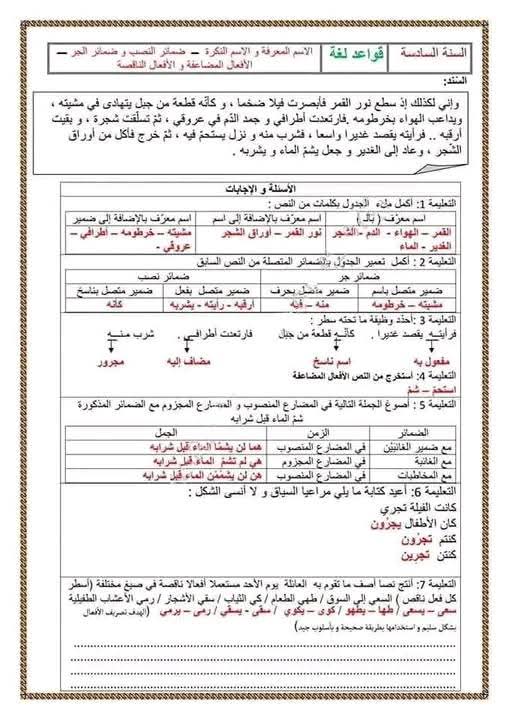 السنة السادسة
قواعد لغة
الاسم المعرفة و الاسم النكرة – ضمائر النصب و ضمائر الجر – الأفعال المضاعفة و الأفعال الناقصة
السّند:
وإني لكذلك إذ سطع نور القمر فأبصرت فيلا ضخما ، و كأنّه قطعة من جبل يتهادى في مشيته ،
ويداعب الهواء بخرطومه .فارتعدت أطرافي و جمد الدّم في عروقي ، ثمّ تسلّقت شجرة ، و بقيت
أرقبه .. فرأيته يقصد غديرا واسعا ، فشرب منه و نزل يستحمّ فيه ، ثمّ خرج فأكل من أوراق
الشّجر ، وعاد إلى الغدير و جعل يشمّ الماء و يشربه .
الأسئلة و الإجابات
التعليمة 1: أكمل ملء الجدول بكلمات من النص :
اسم معرّف ( بال ) | اسم معرّف بالإضافة إلى اسم | اسم معرّف بالإضافة إلى ضمير
القمر - الهواء - الدم - الشّجر | نور القمر – أوراق الشّجر | مشيته – خرطومه – أطرافي –
الغدير - الماء | عروقي -
التعليمة 2 : أكمل تعمير الجدول بالضمائر المتصلة من النص السابق
ضمائر جر | ضمائر نصب
ضمير متصل باسم | ضمير متصل بحرف | ضمير متصل بفعل | ضمير متصل بناسخ
مشيته – خرطومه | منه – فيه | أرقبه - رأيته - يشربه | كأنه
التعليمة 3 :أحدّد وظيفة ما تحته سطر :
فرأيتــه يقصد غديرا . كأنّــه قطعة من جبل فارتعدت أطرافــي . شرب منــه
مفعول به اسم ناسخ مضاف إليه مجرور
التعليمة 4: أستخرج من النص الأفعال المضاعفة
استحمّ – شمّ
التعليمة 5 : أصوغ الجملة التالية في المضارع المنصوب و المضارع المجزوم مع الضمائر المذكورة
شمّ الماء قبل شرابه
الضمائر | الزمن | الجمل
مع ضمير الغائبَيْن | في المضارع المنصوب | هما لن يشمّا الماء قبل شرابه
مع الغائبة | في المضارع المجزوم | هي لم تشمّ الماء قبل شرابه
مع المخاطبات | في المضارع المنصوب | هن لن يشممْن الماء قبل شرابه
التعليمة 6: أعيد كتابة ما يلي مراعيا السياق و لا أنسى الشكل :
كانت الفيلة تجري
كان الأطفال يجرُون
كنتم تجرُون
كنتن تجرِين
التعليمة 7: أنتج نصا أصف ما تقوم به العائلة يوم الأحد مستعملا أفعالا ناقصة في صيغ مختلفة (أسطر
كل فعل ناقص ) السعي إلى السوق / طهي الطعام / كي الثياب / سقي الأشجار / رمي الأعشاب الطفيلية
سعى – يسعى / طها – يطهو / كوى – يكوي / سقى - يسقي / رمى – يرمي (الهدف تصريف الأفعال
بشكل سليم و استخدامها بطريقة صحيحة و بأسلوب جيد)